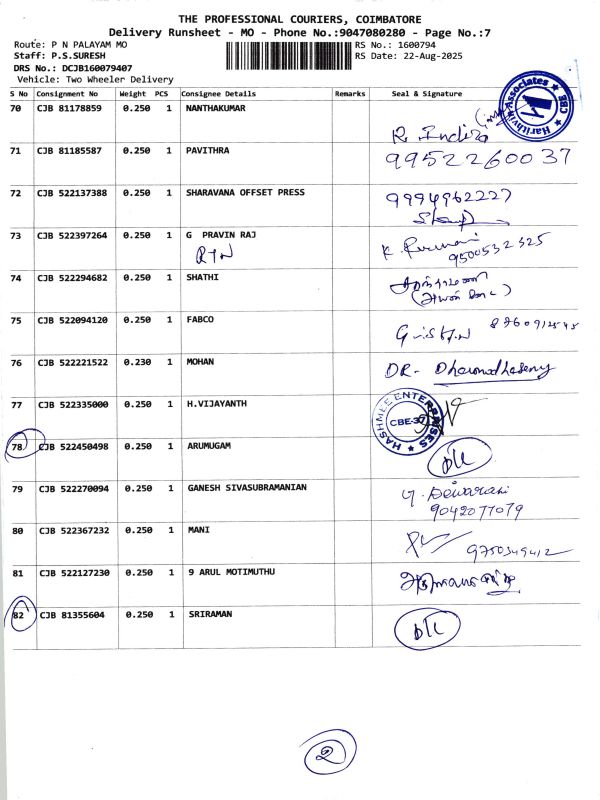 THE PROFESSIONAL COURIERS, COIMBATORE
Delivery Runsheet - MO - Phone No.:9047080280 - Page No.:7
Route: P N PALAYAM MO RS No.: 1600794
Staff: P.S.SURESH RS Date: 22-Aug-2025
DRS No.: DCJB160079407
Vehicle: Two Wheeler Delivery
S No Consignment No Weight PCS Consignee Details Remarks Seal & Signature
70 CJB 81178859 0.250 1 NANTHAKUMAR
Harithvin Associates CBE
R. Indira
71 CJB 81185587 0.250 1 PAVITHRA 9952260037
72 CJB 522137388 0.250 1 SHARAVANA OFFSET PRESS 9994962227
73 CJB 522397264 0.250 1 G PRAVIN RAJ K.
RTN 9500532325
74 CJB 522294682 0.250 1 SHATHI
75 CJB 522094120 0.250 1 FABCO
76 CJB 522221522 0.230 1 MOHAN DR-
77 CJB 522335000 0.250 1 H.VIJAYANTH
HASHMEE ENTERPRISES CBE-37
78 CJB 522450498 0.250 1 ARUMUGAM
79 CJB 522270094 0.250 1 GANESH SIVASUBRAMANIAN G. Dewarani
9042077079
80 CJB 522367232 0.250 1 MANI 9750349412
81 CJB 522127230 0.250 1 9 ARUL MOTIMUTHU
82 CJB 81355604 0.250 1 SRIRAMAN
2